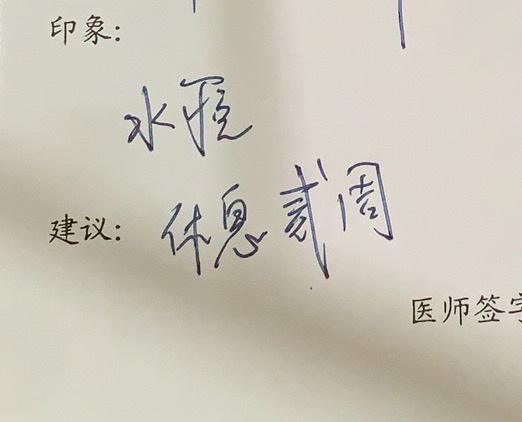 印象：
水痘
建议：休息贰周
医师签字